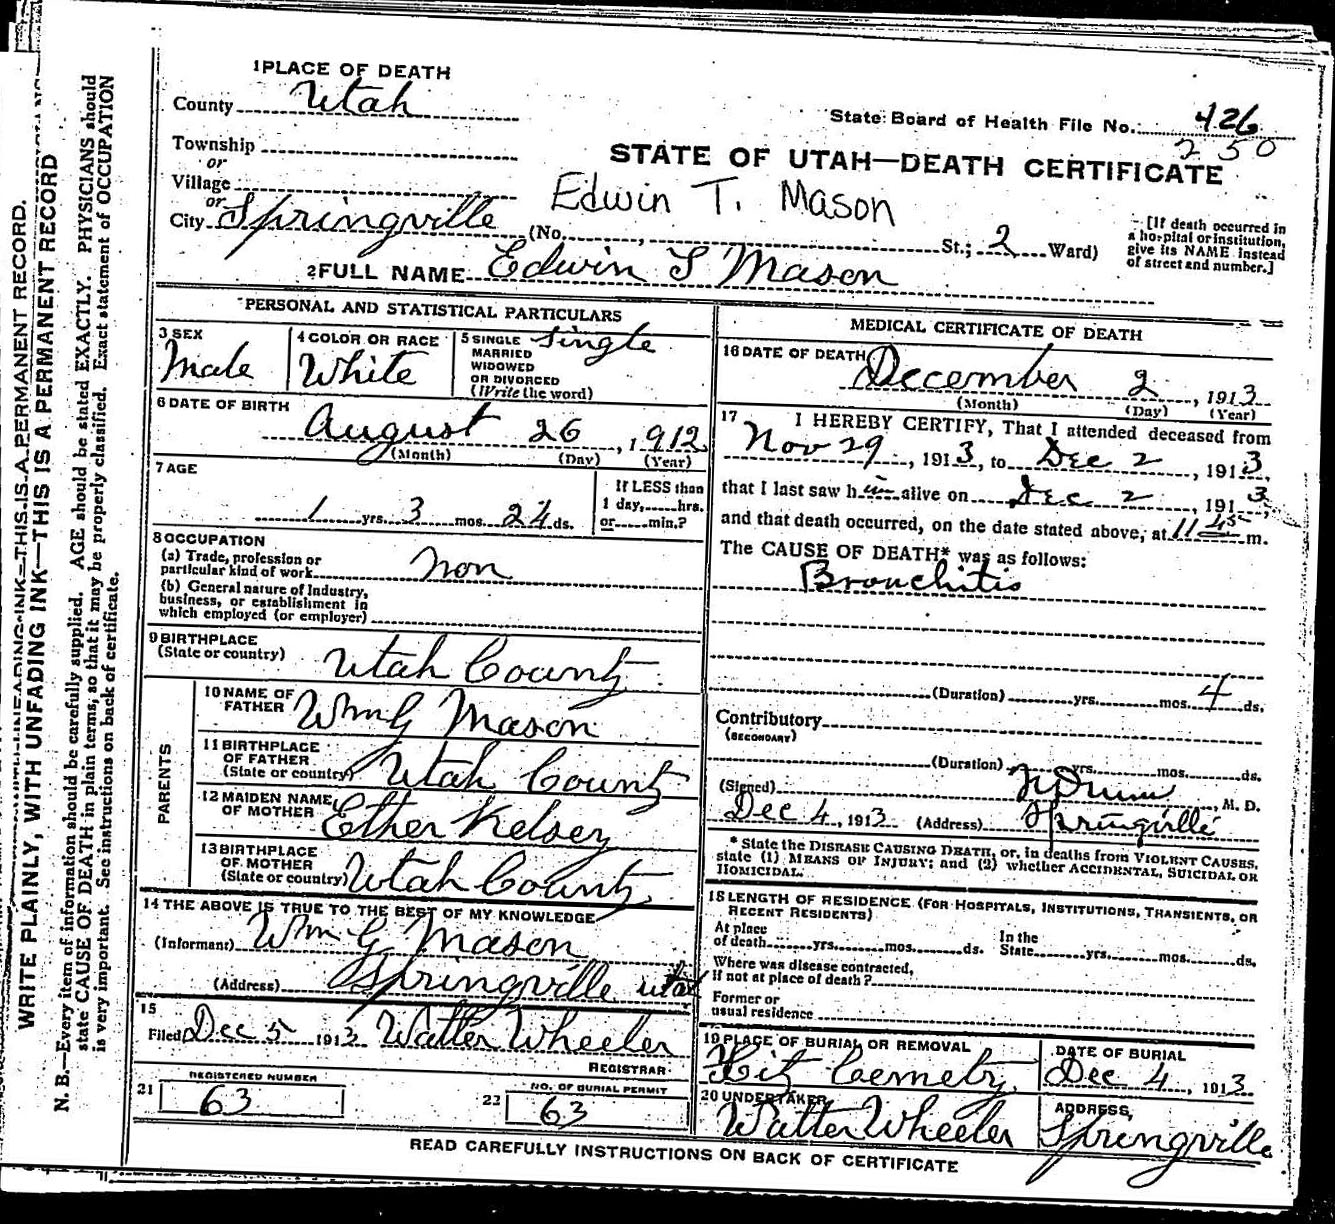 1 PLACE OF DEATH
County Utah
State Board of Health File No. 426
250
Township
or
Village
or
City Springville (No. St.; 2 Ward)
STATE OF UTAH—DEATH CERTIFICATE
Edwin T. Mason
[If death occurred in
a hospital or institution,
give its NAME instead
of street and number.]
2 FULL NAME Edwin T Mason
PERSONAL AND STATISTICAL PARTICULARS
3 SEX
Male
4 COLOR OR RACE
White
5 SINGLE
MARRIED
WIDOWED
OR DIVORCED
(Write the word)
Single
6 DATE OF BIRTH
August 26, 1912
(Month) (Day) (Year)
7 AGE
1 yrs. 3 mos. 24 ds.
If LESS than
1 day, hrs.
or min.?
8 OCCUPATION
(a) Trade, profession or
particular kind of work non
(b) General nature of Industry,
business, or establishment in
which employed (or employer)
9 BIRTHPLACE
(State or country) Utah County
PARENTS
10 NAME OF
FATHER Wm G Mason
11 BIRTHPLACE
OF FATHER
(State or country) Utah County
12 MAIDEN NAME
OF MOTHER Ether Kelsey
13 BIRTHPLACE
OF MOTHER
(State or country) Utah County
14 THE ABOVE IS TRUE TO THE BEST OF MY KNOWLEDGE
(Informant) Wm G Mason
(Address) Springville Utah
15
Filed Dec 5 1913 Walter Wheeler
REGISTRAR
REGISTERED NUMBER
21 63
NO. OF BURIAL PERMIT
22 63
MEDICAL CERTIFICATE OF DEATH
16 DATE OF DEATH
December 2, 1913
(Month) (Day) (Year)
17 I HEREBY CERTIFY, That I attended deceased from
Nov 29, 1913, to Dec 2, 1913,
that I last saw him alive on Dec 2, 1913,
and that death occurred, on the date stated above, at 11 45 m.
The CAUSE OF DEATH* was as follows:
Bronchitis
(Duration) yrs. mos. 4 ds.
Contributory
(SECONDARY)
(Duration) yrs. mos. ds.
(Signed) M. D.
Dec 4, 1913 (Address) Springville
* State the DISEASE CAUSING DEATH, or, in deaths from VIOLENT CAUSES,
state (1) MEANS OF INJURY; and (2) whether ACCIDENTAL, SUICIDAL OR
HOMICIDAL.
18 LENGTH OF RESIDENCE (FOR HOSPITALS, INSTITUTIONS, TRANSIENTS, OR
RECENT RESIDENTS)
At place
of death yrs. mos. ds.
In the
State yrs. mos. ds.
Where was disease contracted,
if not at place of death?
Former or
usual residence
19 PLACE OF BURIAL OR REMOVAL
DATE OF BURIAL
Dec 4, 1913
20 UNDERTAKER
Walter Wheeler
ADDRESS,
Springville
READ CAREFULLY INSTRUCTIONS ON BACK OF CERTIFICATE
WRITE PLAINLY, WITH UNFADING INK—THIS IS A PERMANENT RECORD
N. B.—Every item of information should be carefully supplied. AGE should be stated EXACTLY. PHYSICIANS should
state CAUSE OF DEATH in plain terms, so that it may be properly classified. Exact statement of OCCUPATION
is very important. See instructions on back of certificate.
THIS IS A PERMANENT RECORD.